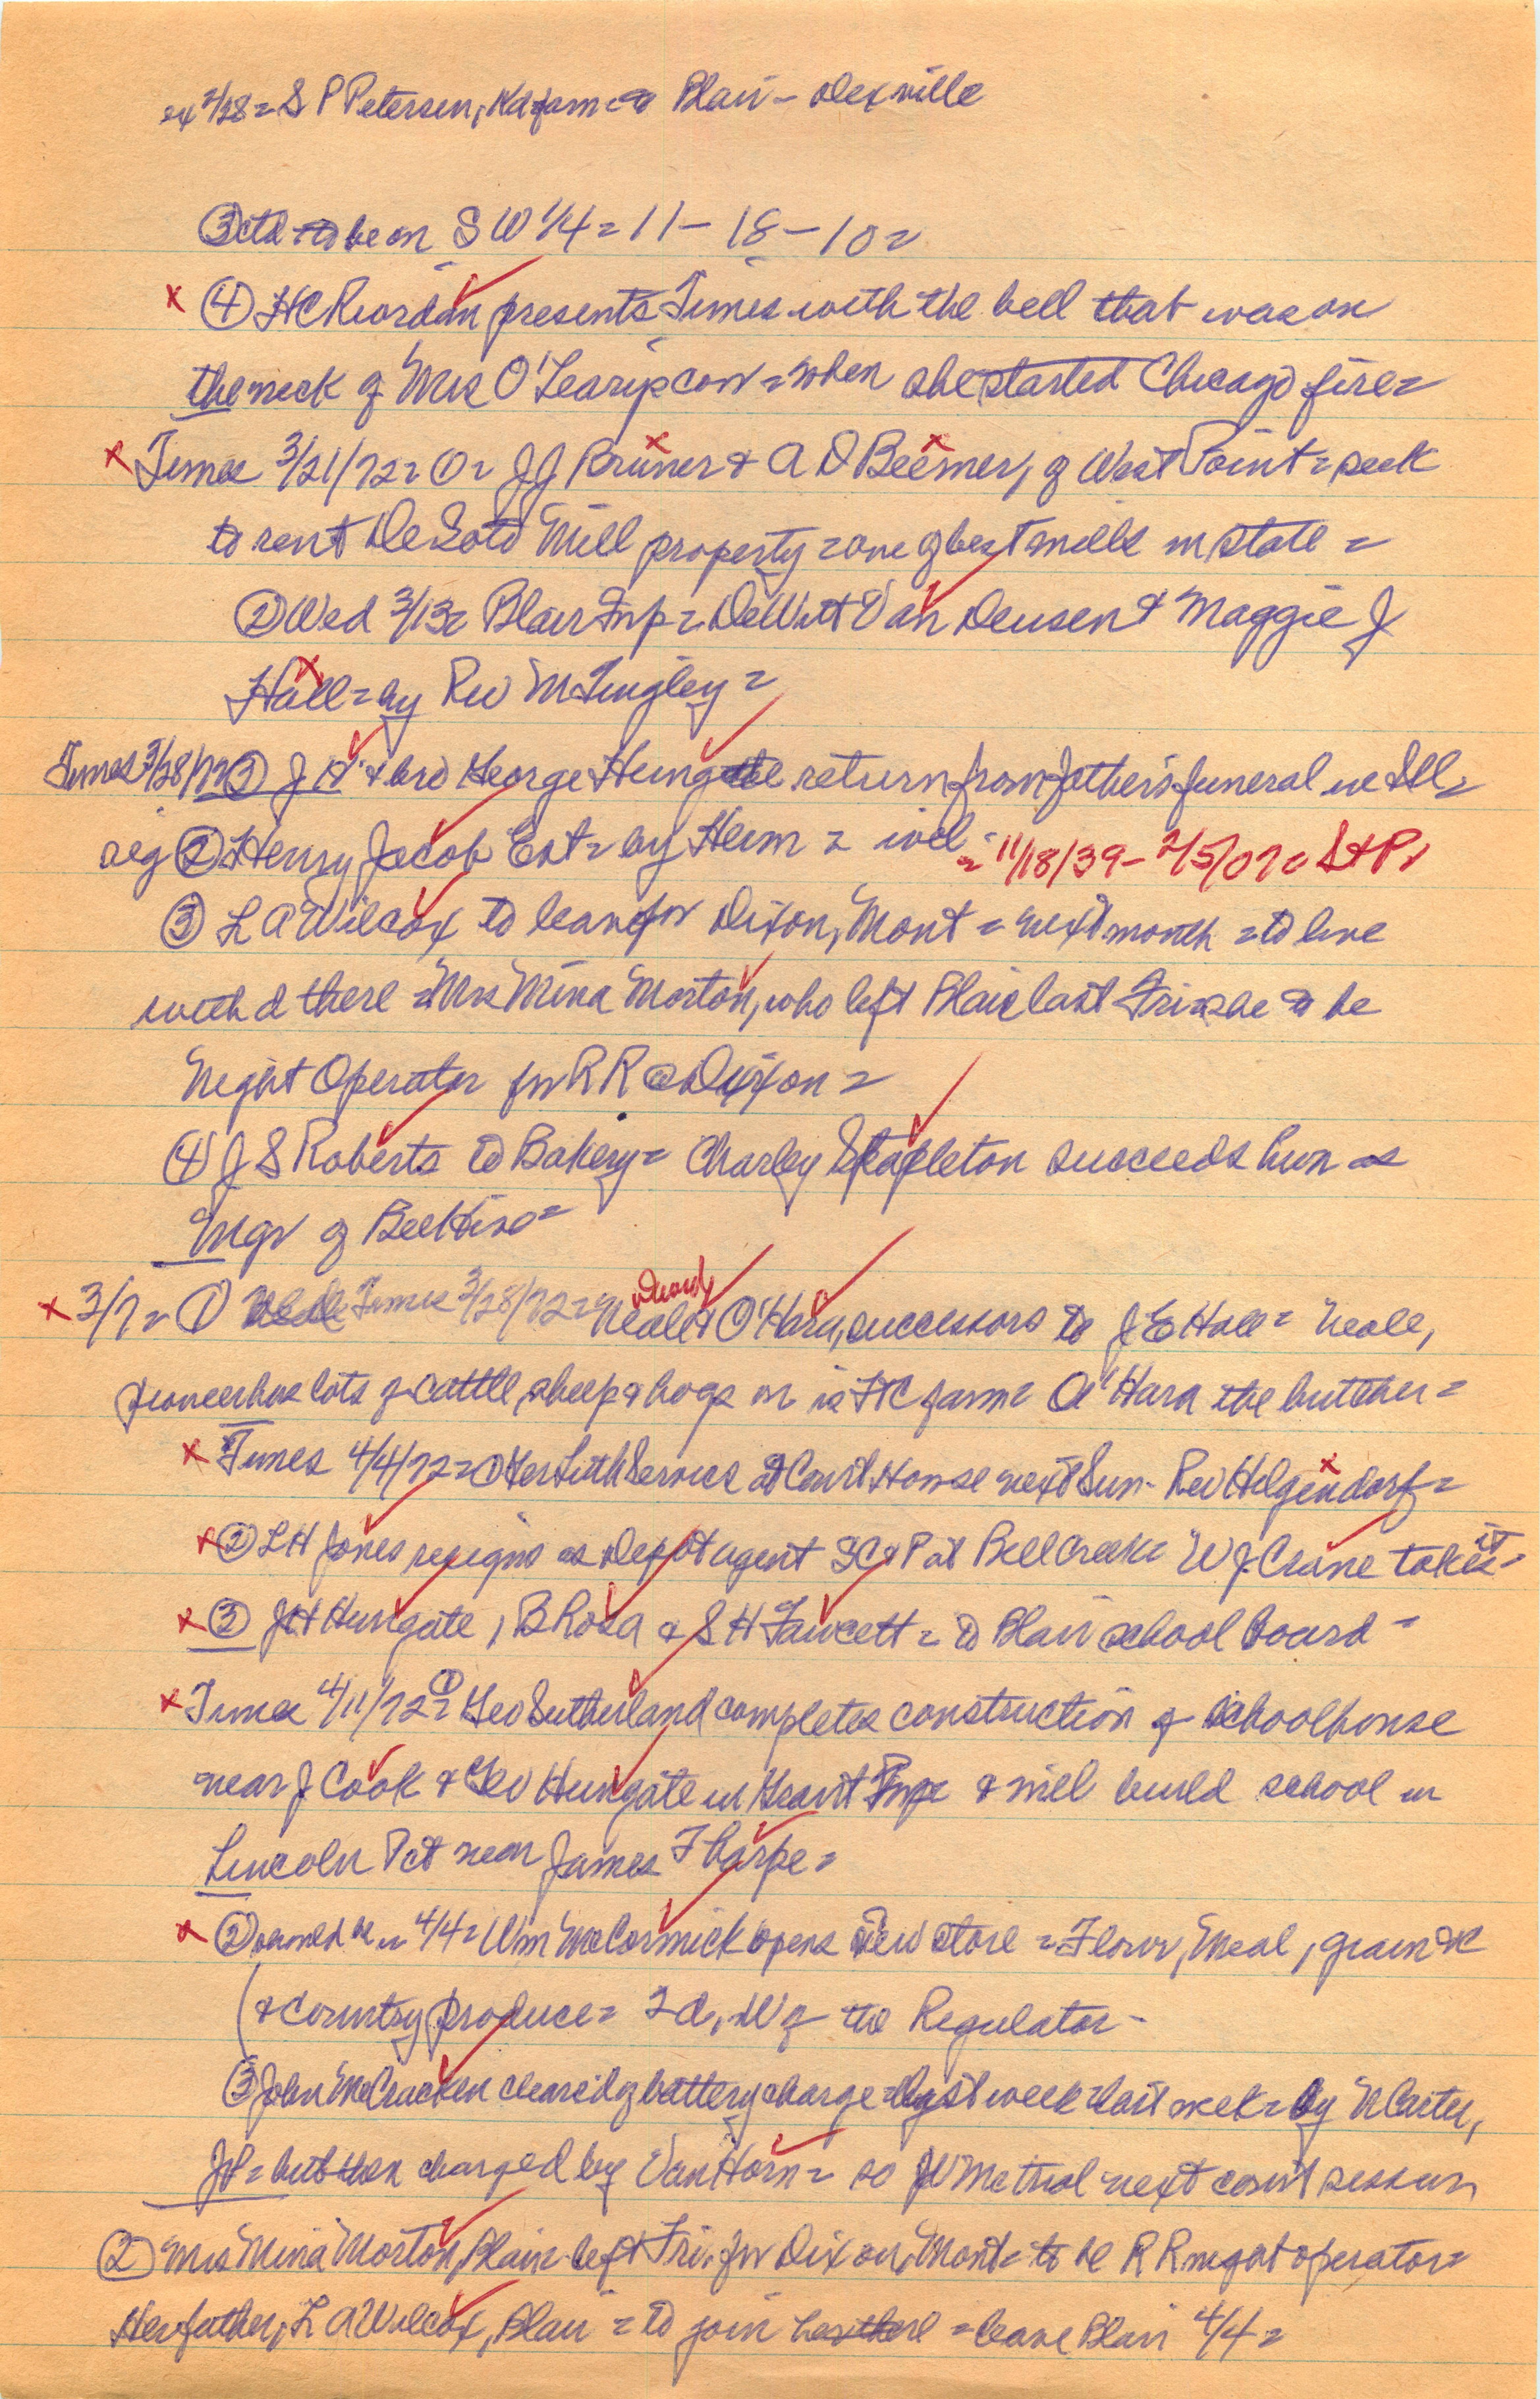 ex 2/28 = S P Petersen, Kd farm = Blair –
③ctd to be on S W 1/4 = 11 – 18 – 10 =
x ④ H C Riordan presents Times with the bell that was on
the neck of Mrs O'Learys cow = when she started Chicago fire =
x Times 3/21/72 = ① = J J Bruner & A D Beemer, of West Point = seek
to rent DeSoto Mill property = one of best mills in state =
② Wed 3/13 = Blair Tnp = DeWitt Van Deusen & Maggie J
Hall = by Rev M Tingley =
Times 3/28/72 ① J H & bro George Hungate return from father's funeral in Ill =
② Henry Jacob Ent = by Herm = = 11/18/39 – 2/5/07 = S & P
③ L A Wilcox to leave for Dixon, Mont = next month = to live
with d there = Mrs Mina Morton, who left Blair last Fri = she to be
Night Operator for R R @ Dixon =
④ J S Roberts to Bakery = Charley Stapleton succeeds him as
Mgr of
x 3/7 = ① Times 3/28/72 = Neale & O'Hara, successors to J E Hall = Neale,
pioneer has lots of cattle, sheep & hogs on is FtC farm = O'Hara the butcher =
x Times 4/4/72 = ① Ger Luth Service at Court House next Sun – Rev Hilgendorf =
x ② L H Jones resigns as Depot agent SC&P at Bell Creek = W J Crane takes it =
x ③ J H Hungate, B Rosa & S H Fawcett = to Blair school board =
x Times 4/11/72 = ① Geo Sutherland completes construction of schoolhouse
near J Cook & Geo Hungate in Grant Tnp & will build school in
Lincoln Pct near James Tharpe =
x ② 4/4 = Wm McCormick opens new store = Flour, Meal, grain &c
(& country produce = 2 d, W of the Regulator –
③ John McCracken cleared of battery charge = last week = last week = by N Carter,
JP = but then charged by Van Horn = so JV Mc trial next court session
② Mrs Mina Morton, Blair left Fri. for Dixon, Mont = to be R R night operator =
Her father, L A Wilcox, Blair = to join her there = leave Blair 4/4 =